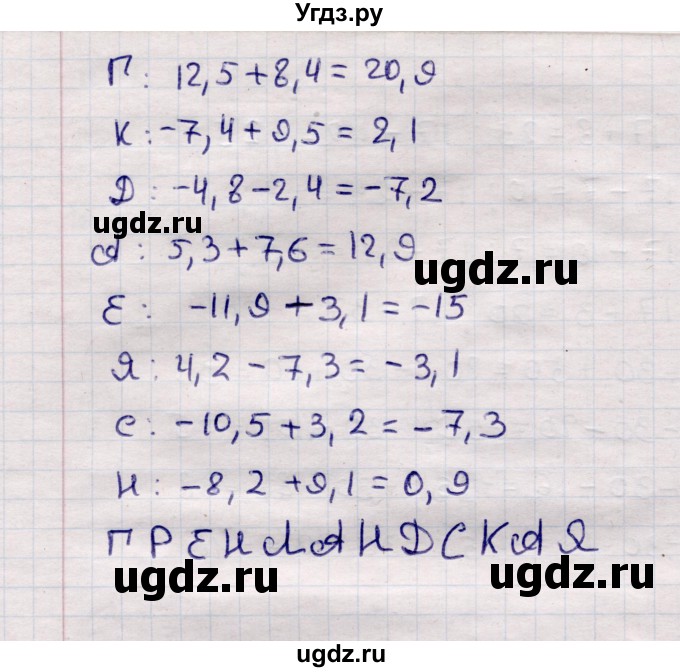 Угдз.ру
Г: 12,5+8,4=20,9
К: -7,4+9,5=2,1
Д: -4,8-2,4=-7,2
ugdz.ru
А: 5,3+7,6=12,9
ugdz.ru
Е: -11,9+3,1=-15
Я: 4,2-7,3=-3,1
С: -10,5+3,2=-7,3
Н: -8,2+9,1=0,9
ГРЕНЛАНДСКАЯ
ugdz.ru
ugdz.ru
ugdz.ru